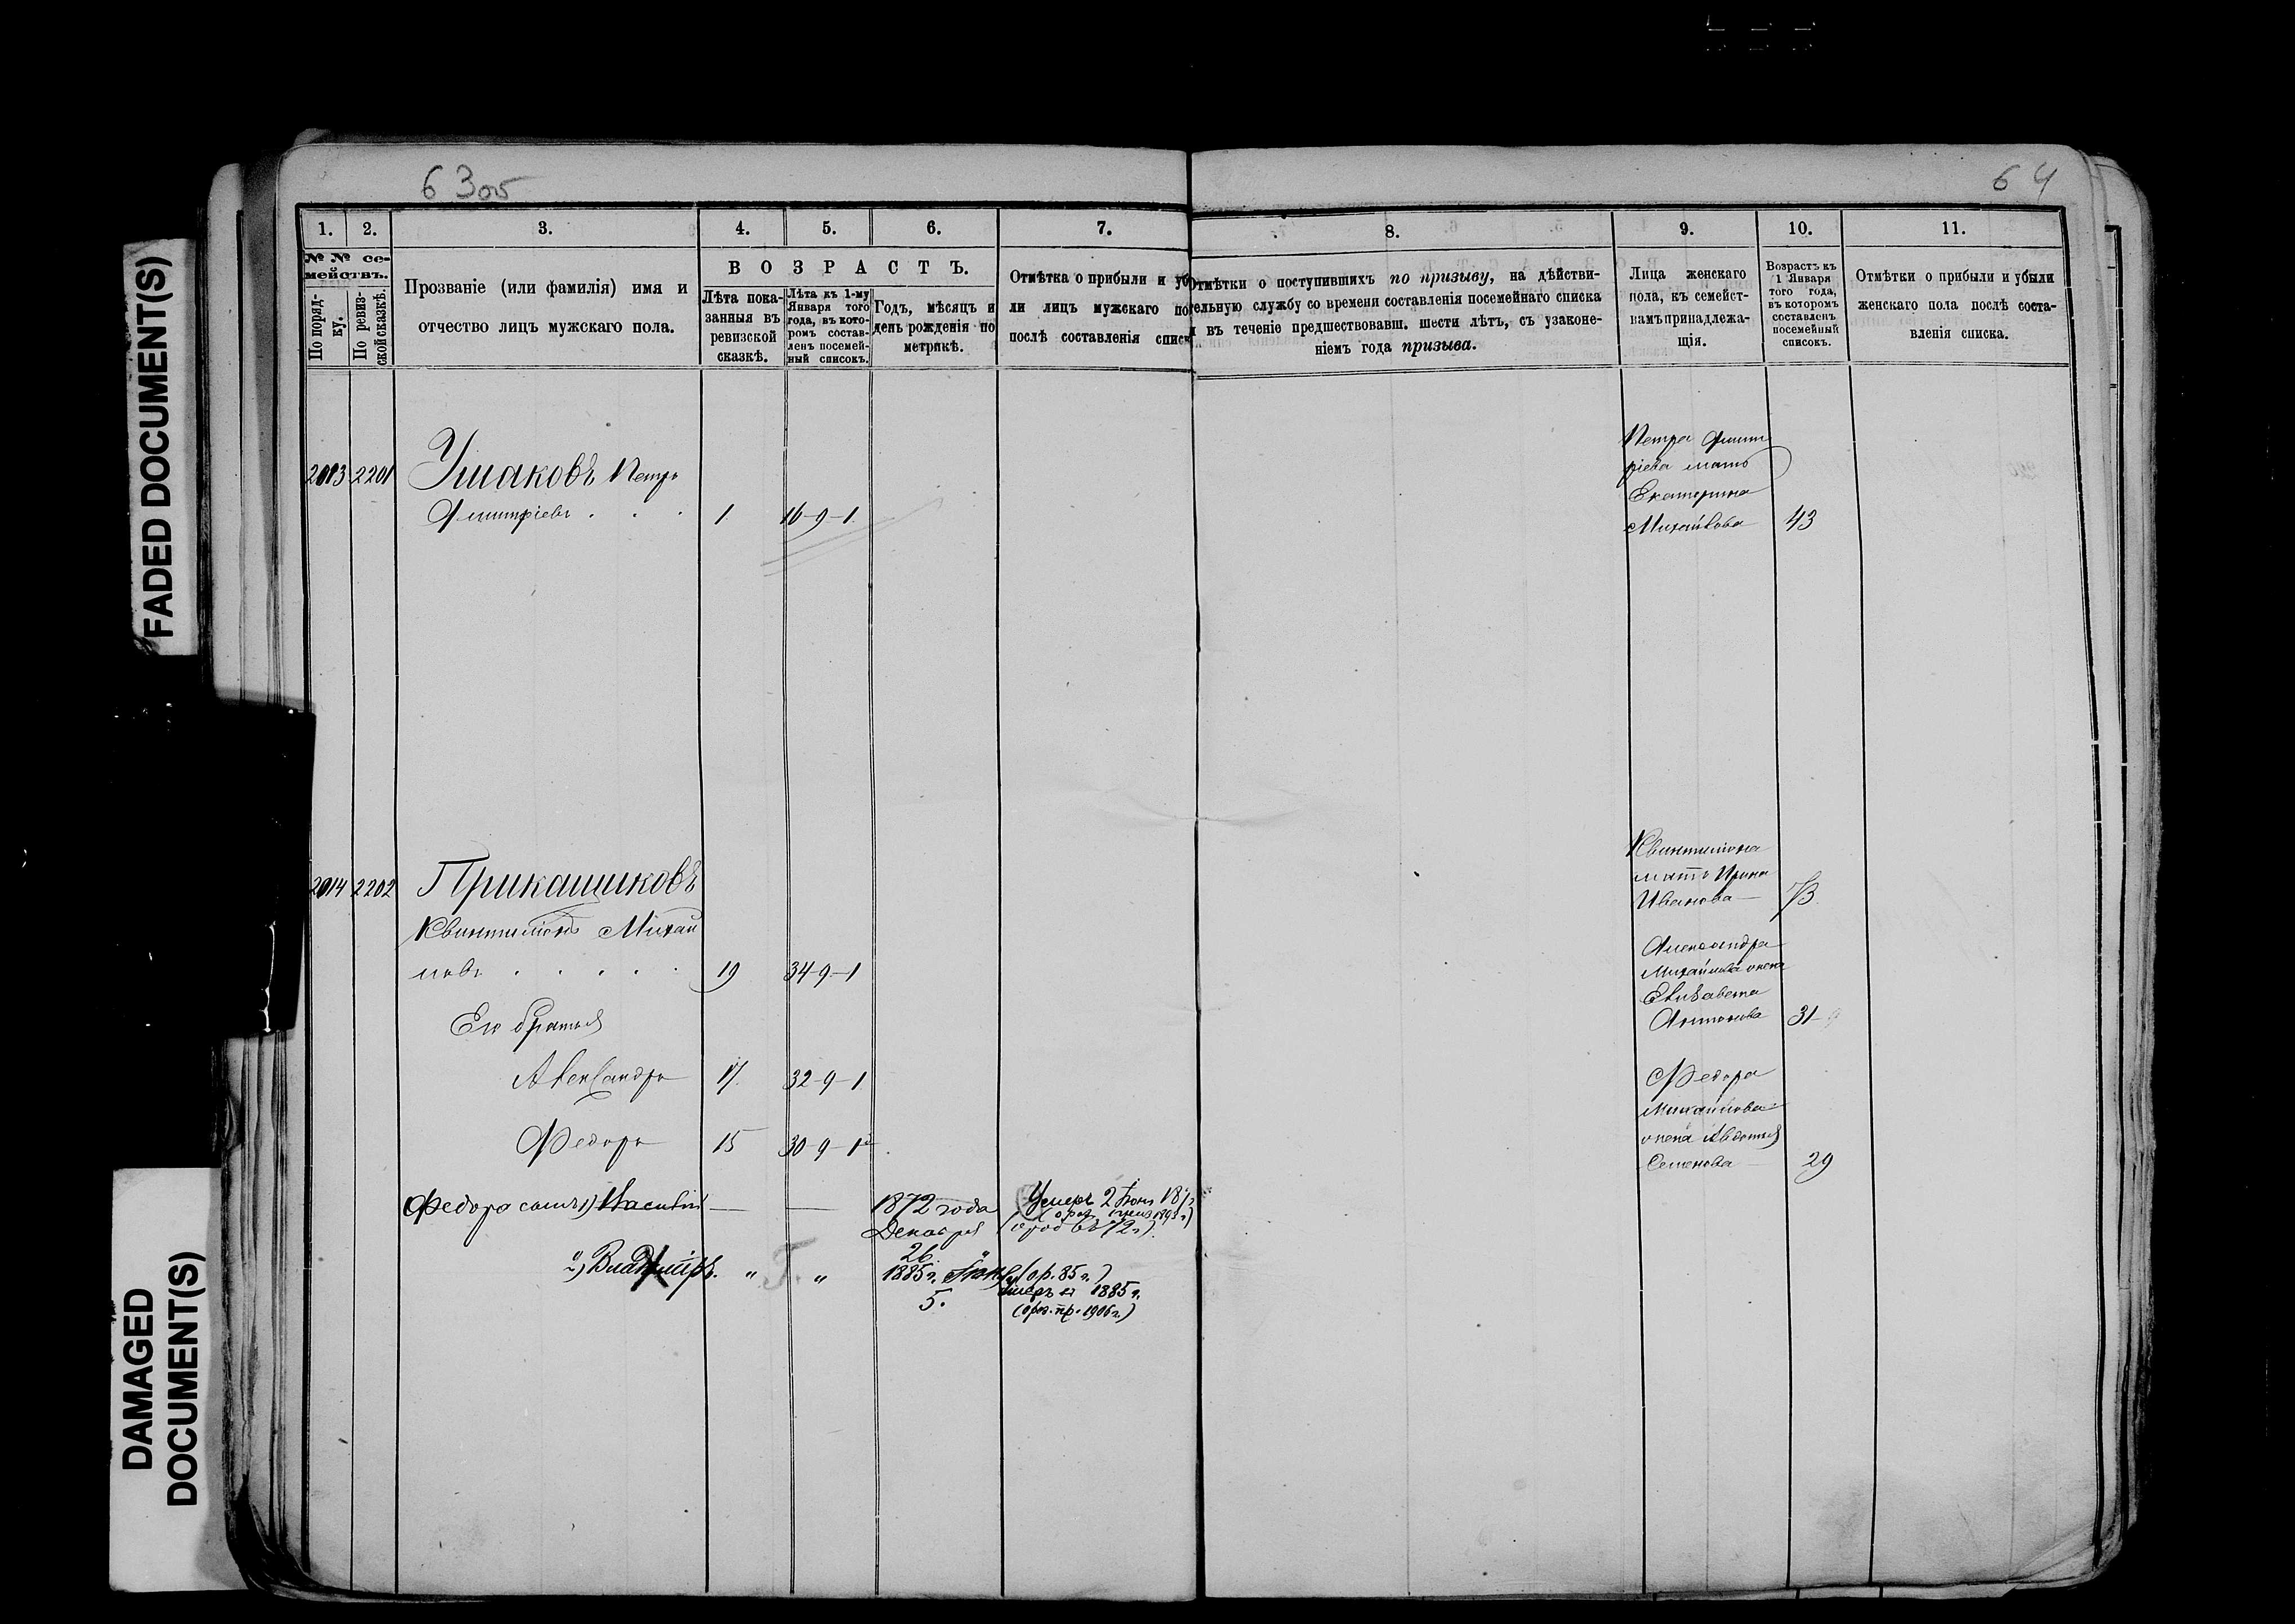 FADED DOCUMENT(S)
DAMAGED
DOCUMENT(S)
63об
64
1. 2. 3. 4. 5. 6. 7. 8. 9. 10. 11.
№ № се-
мействъ.
По поряд-
ку.
По ревиз-
ской сказкѣ.
Прозваніе (или фамилія) имя и
отчество лицъ мужскаго пола.
ВОЗРАСТЪ.
Лѣта пока-
занныя въ
ревизской
сказкѣ.
Лѣта къ 1-му
Января того
года, въ кото-
ромъ состав-
ленъ посемей-
ный списокъ.
Годъ, мѣсяцъ и
день рожденія по
метрикѣ.
Отмѣтка о прибыли и уб
ли лицъ мужскаго по
послѣ составленія списк
Отмѣтки о поступившихъ по призыву, на дѣйстви-
тельную службу со времени составленія посемейнаго списка
и въ теченіе предшествовавш. шести лѣтъ, съ узаконе-
ніемъ года призыва.
Лица женскаго
пола, къ семейст-
вамъ принадлежа-
щія.
Возрастъ къ
1 Января
того года,
въ которомъ
составленъ
посемейный
списокъ.
Отмѣтки о прибыли и убыли
женскаго пола послѣ соста-
вленія списка.
2013 2201 Ушаковъ Петръ
Дмитріевъ . . . 1. 16-9-1.
Петра Дмит
ріева мать
Екатерина
Михайлова 43
2014 2202 Прикащиковъ
Квинтиліонъ Михай
ловъ . . . . . 19 34-9-1
Его братья
Александръ 17. 32-9-1
Федоръ 15 30-9-1
Федора сынъ 1) Василій — — 1872 года
Декабря
26
Умеръ 2 Іюня
2) Владиміръ. „ „ 1885 г. Іюня
5.
(ор. 85 г.)
умеръ 1885 г.
(пр. 1906 г.)
Квинтиліона
мать Ирина
Иванова — 73.
Александра
Михайлова жена
Елизавета
Антонова 31
Федора
Михайлова
жена Авдотья
Семенова — 29